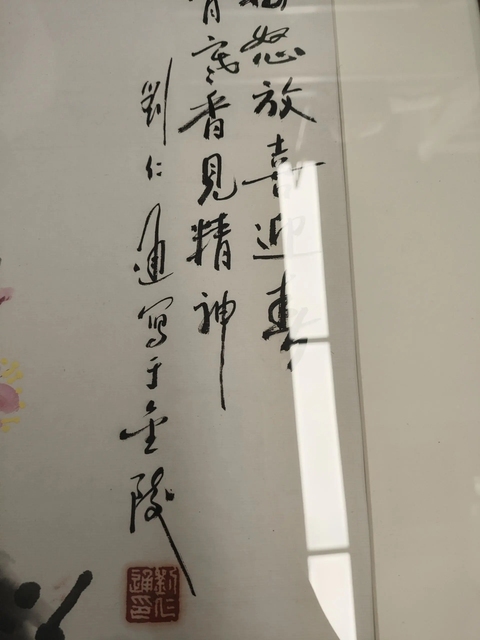 怒放喜迎春
寒香見精神
劉仁通寫于金陵
刘仁通印